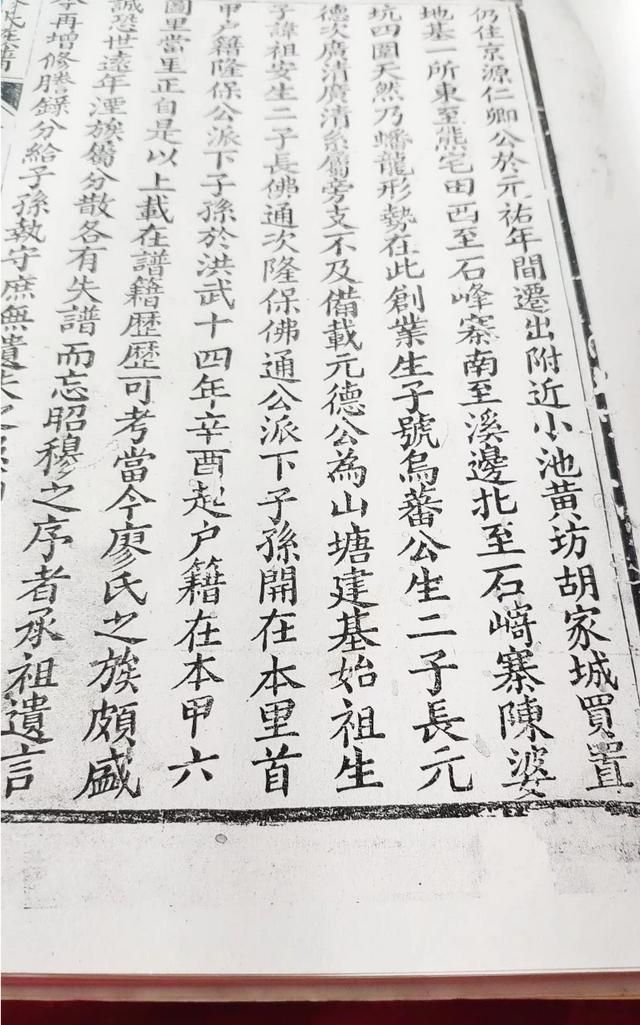 仍住京源仁卿公於元祐年間遷出附近小池黄坊胡家城買置
地基一所東至熊宅田西至石峰寨南至溪邊北至石﨑寨陳婆
坑四圍天然乃蟠龍形勢在此創業生子號烏蕃公生二子長元
德次廣清廣清系屬旁支不及備載元德公為山塘建基始祖生
子諱祖安生二子長佛通次隆保佛通公派下子孫開在本里首
甲户籍隆保公派下子孫於洪武十四年辛酉起户籍在本甲六
圖里當里正自是以上載在譜籍歷歷可考當今廖氏之族頗盛
誠恐世遠年湮族屬分散各有失譜而忘昭穆之序者承祖遺言
今再增修謄錄分給子孫執守庶無遺失之